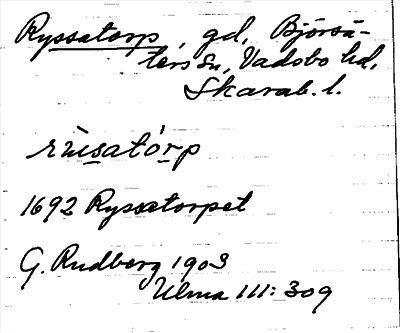 Ryssatorp gd, Björsä-
ters sn, Vadsbo hd,
Skarab. l.
rùsatórp
1692 Ryssetorpet
G. Rudberg 1903
Ulma 111: 309